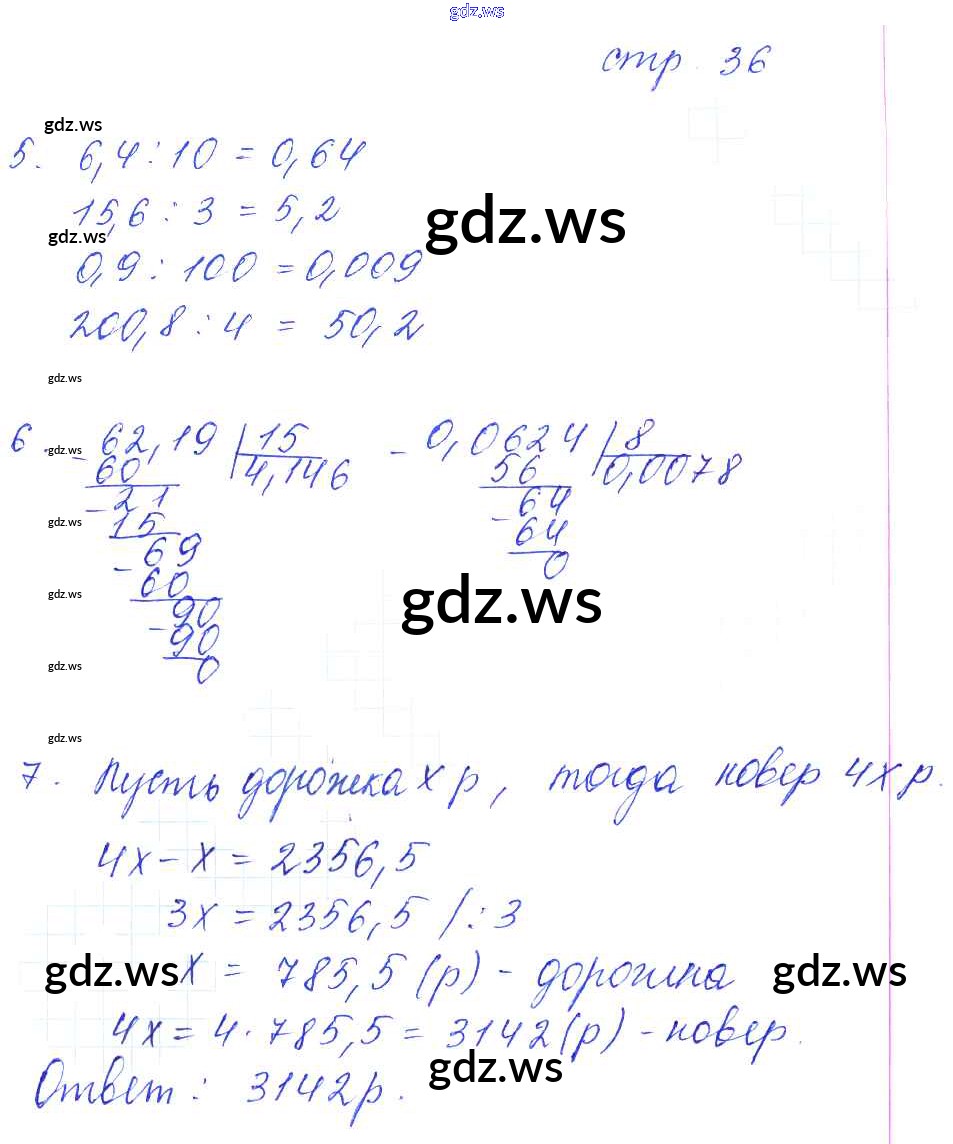 gdz.ws
стр. 36
gdz.ws
5. 6,4 : 10 = 0,64
15,6 : 3 = 5,2
gdz.ws
gdz.ws
0,9 : 100 = 0,009
200,8 : 4 = 50,2
gdz.ws
6. - 62,19 | 15
60 4,146
- 21
15
- 69
60
- 90
90
0
- 0,0624 | 8
56 0,0078
- 64
64
0
gdz.ws
gdz.ws
gdz.ws
gdz.ws
gdz.ws
gdz.ws
7. Пусть дорожка х р, тогда ковер 4х р.
4х - х = 2356,5
3х = 2356,5 /: 3
gdz.ws х = 785,5 (р) - дорожка gdz.ws
4х = 4 · 785,5 = 3142 (р) - ковер.
gdz.ws
Ответ: 3142 р.